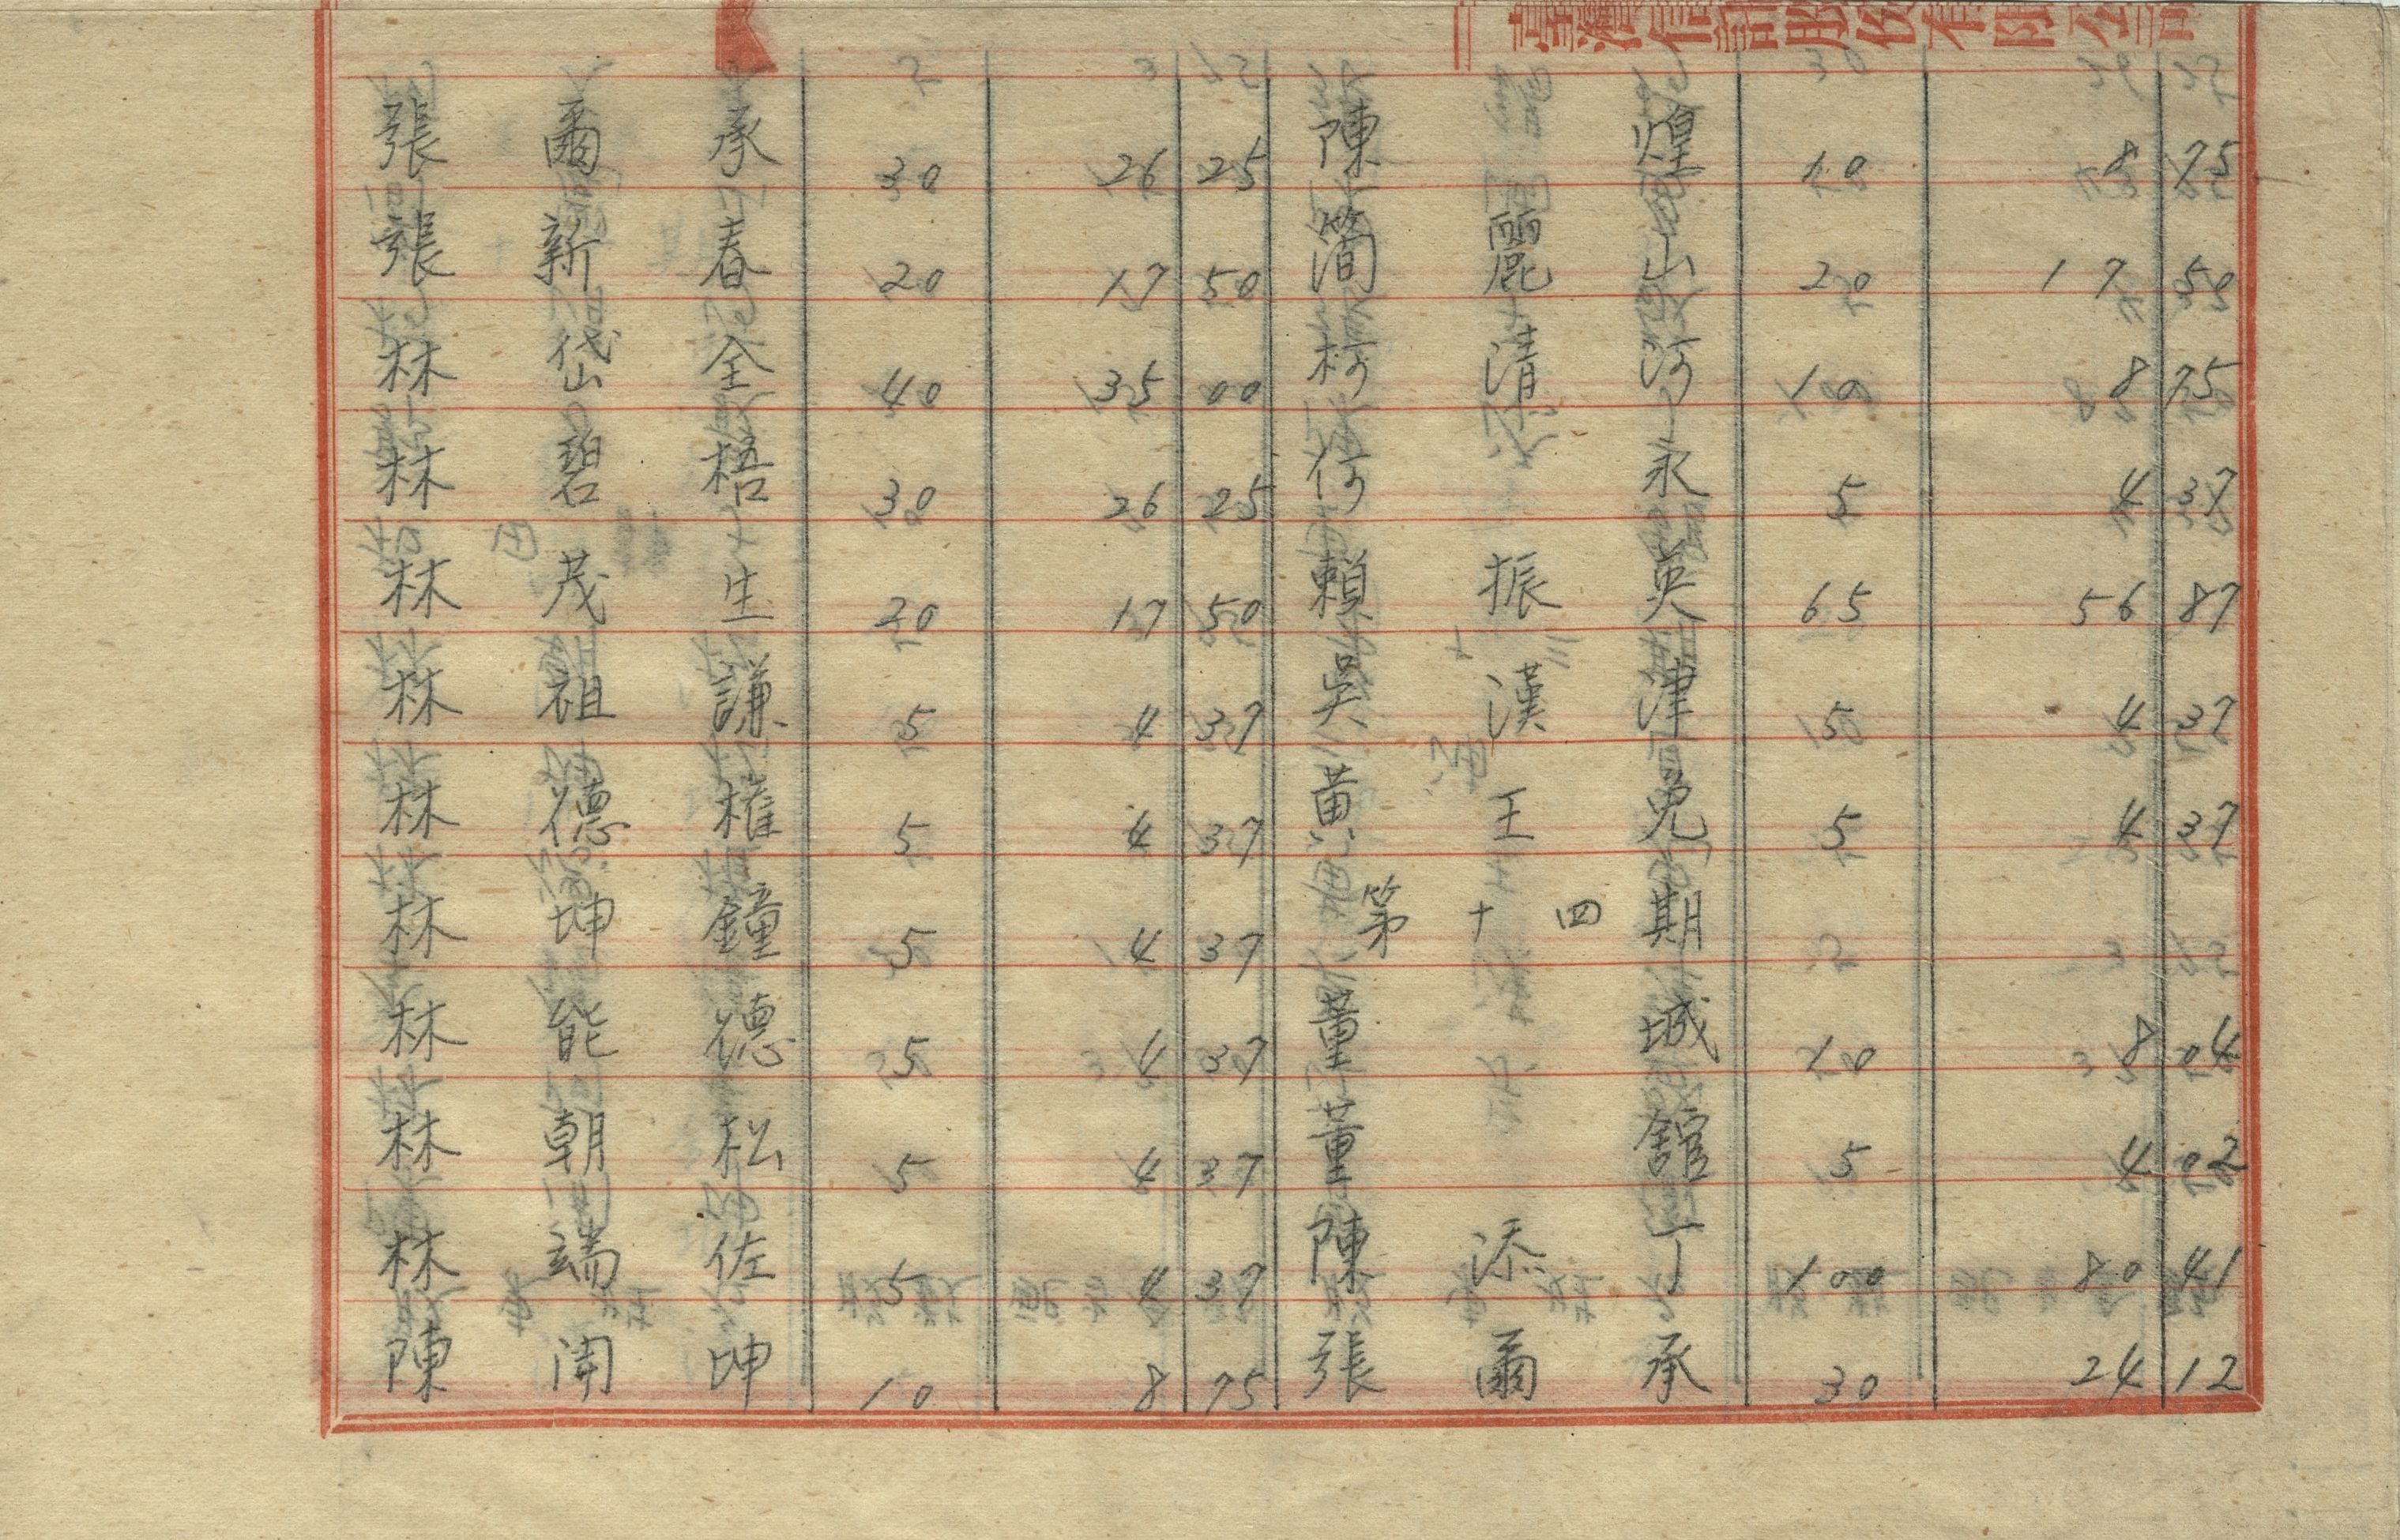 臺灣信託股份有限公司
張爾承 30 26 25
張新春 20 17 50
林岱全 40 35 00
林碧梧 30 26 25
林茂生 20 17 50
林祖謙 5 4 37
林德權 5 4 37
林坤鐘 5 4 37
林能德 5 4 37
林朝松 5 4 37
林端佐 5 4 37
陳開坤 10 8 75
陳煌 10 8 75
簡麗山 20 17 50
柯清河 10 8 75
何永 5 4 37
賴振英 65 56 87
吳漢津 5 4 37
黃王兔 5 4 37
第十四期
董城 10 8 04
董館 5 4 02
陳添丁 100 80 41
張爾承 30 24 12